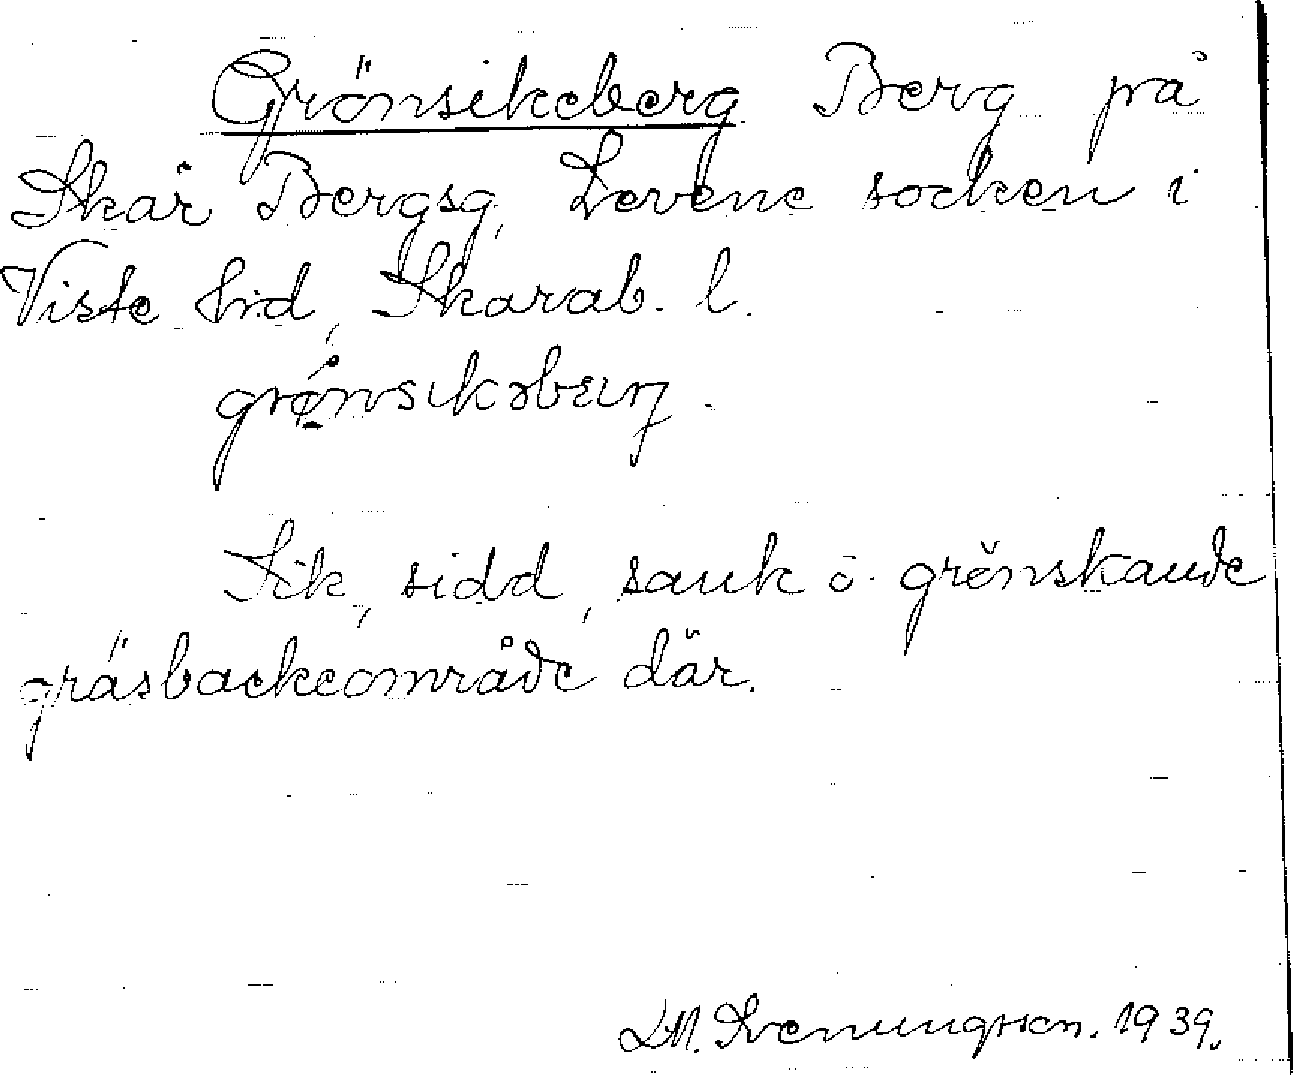 Grönsikeberg Berg på
Skår Bergsg, Levene socken i
Viste hd, Skarab. l.
Sik, sidd, sank o. grönskande
gräsbackeområde där.
1939.